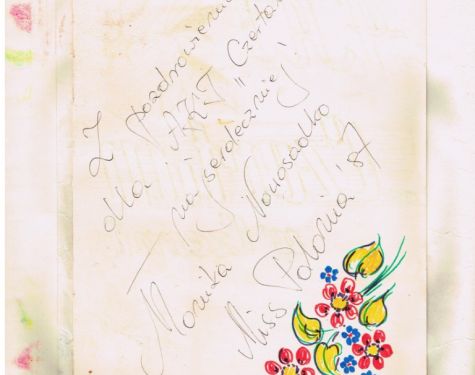 Z pozdrowieniami
dla "AKT" Czart
najserdeczniej
Monika Nowosadko
Miss Polonia '87